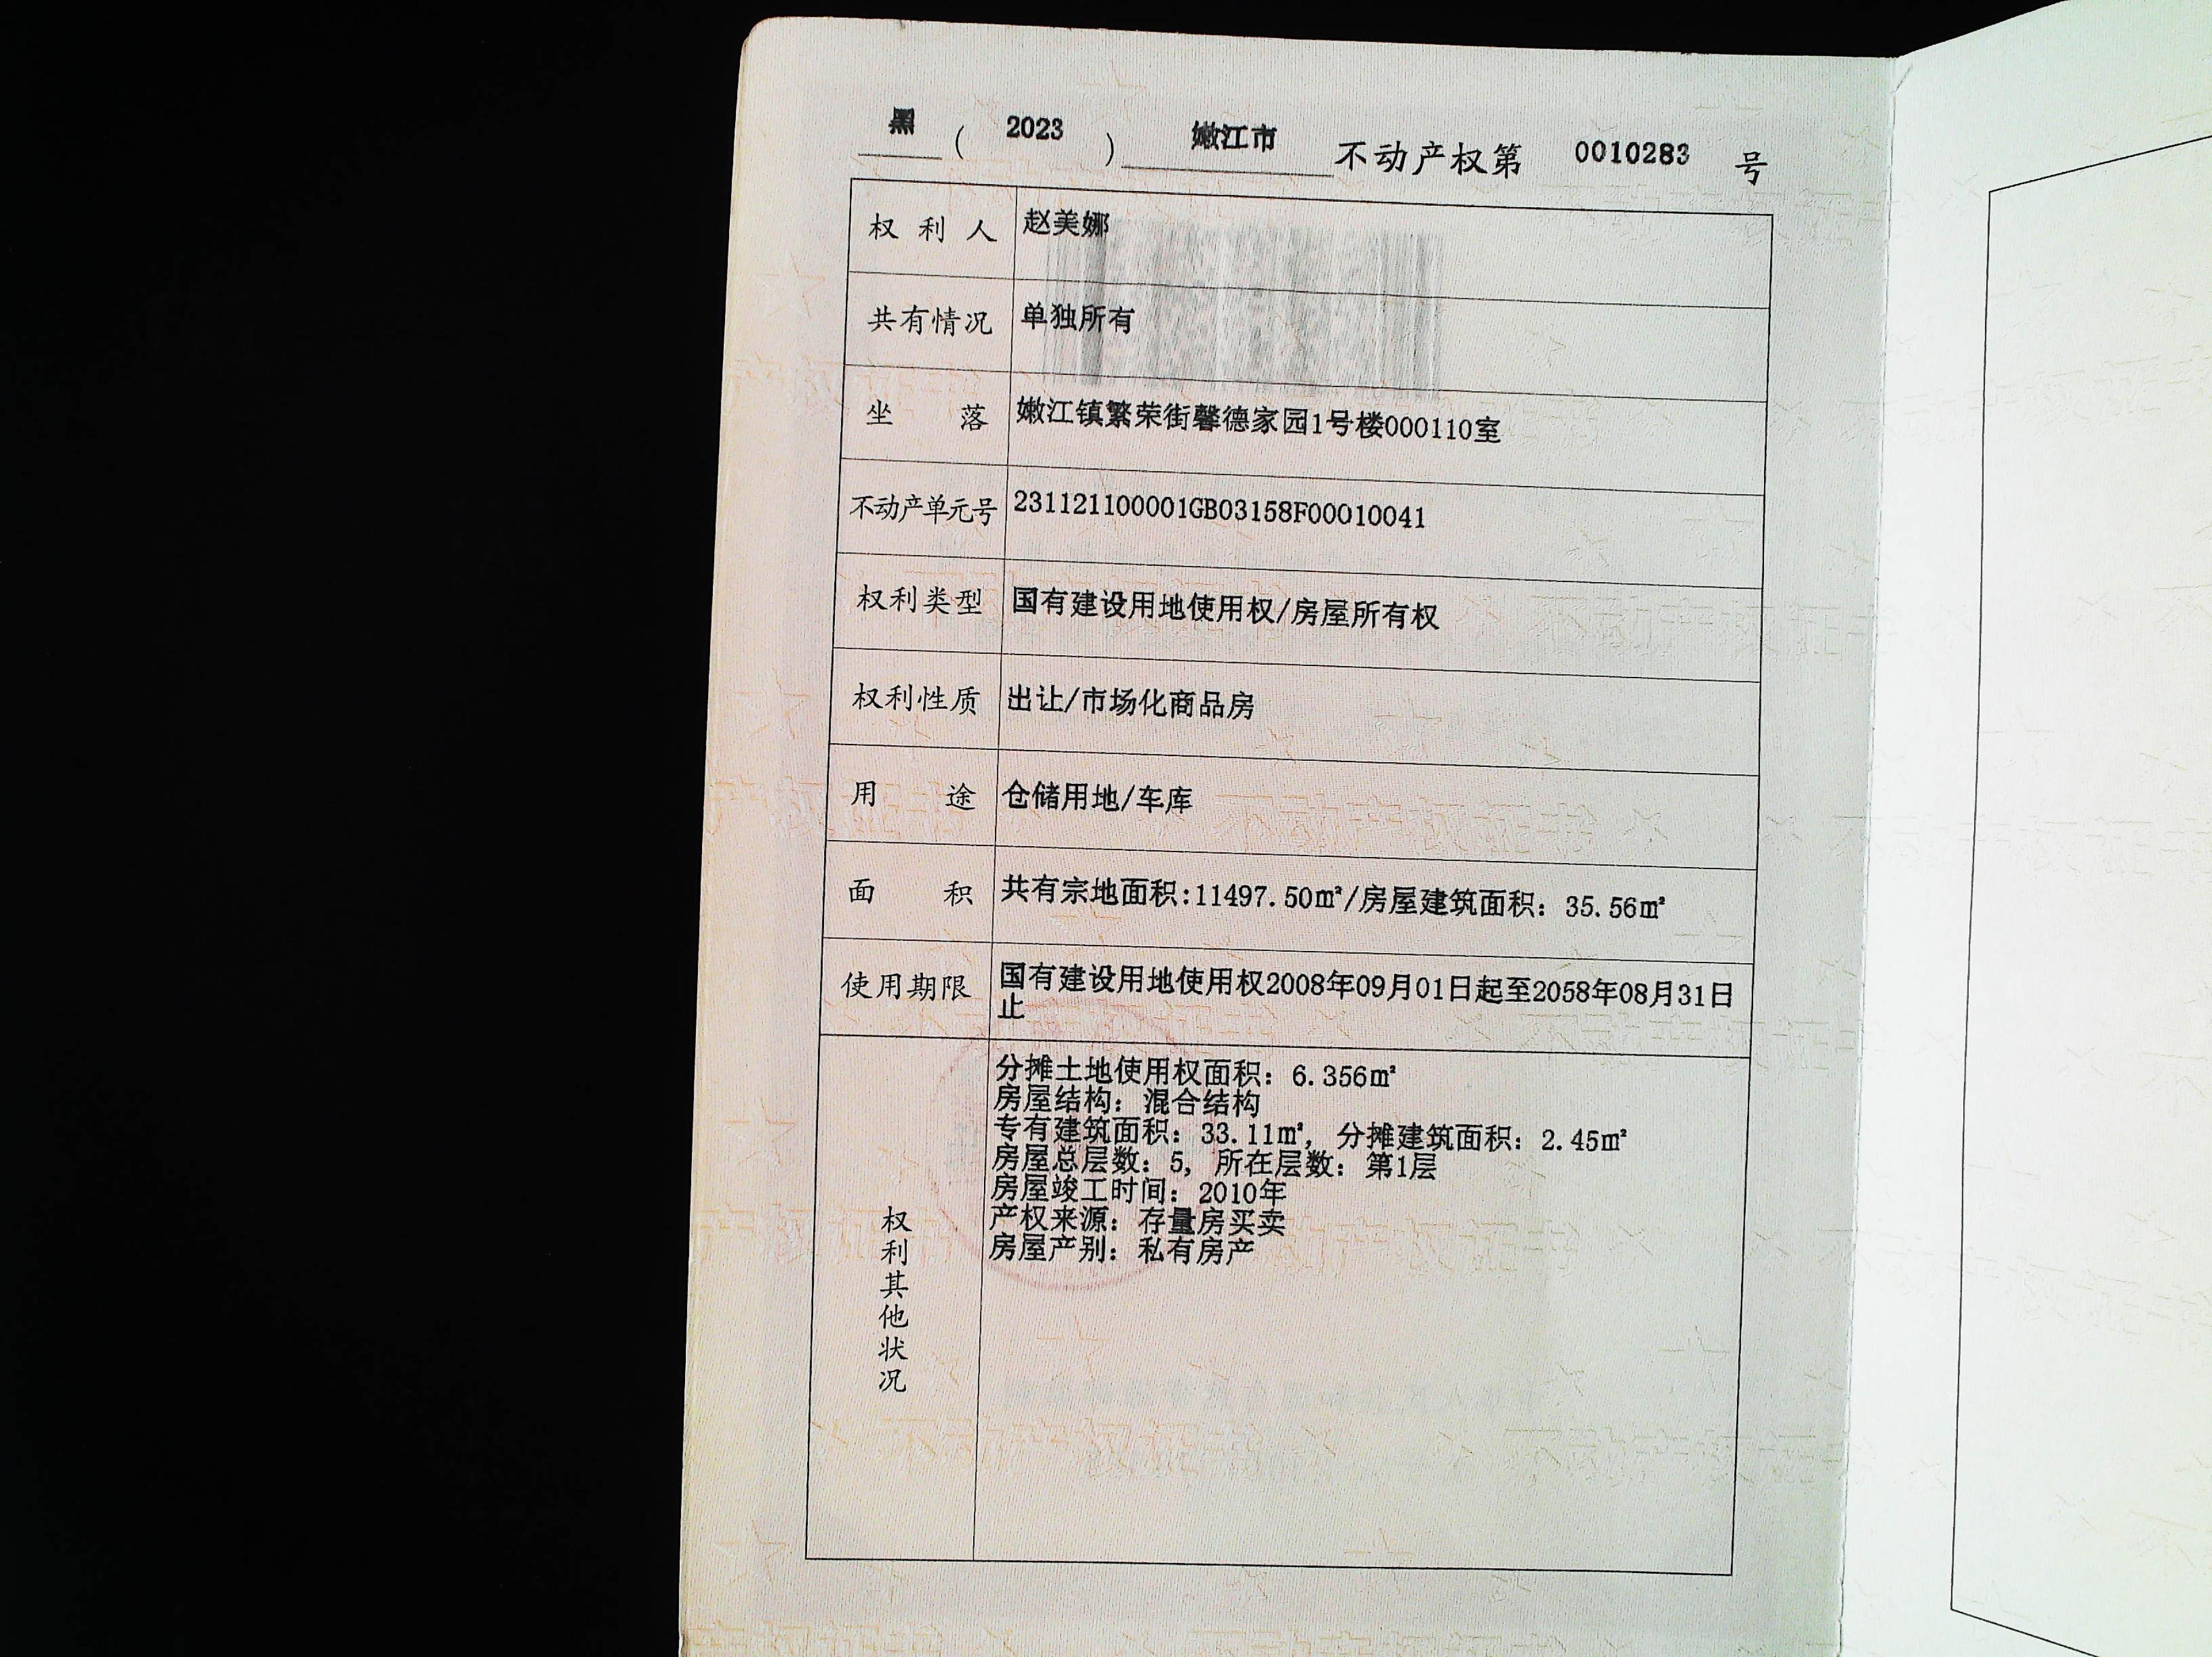 黑 ( 2023 ) 嫩江市 不动产权第 0010283 号
权利人 赵美娜
共有情况 单独所有
坐落 嫩江镇繁荣街馨德家园1号楼000110室
不动产单元号 231121100001GB03158F00010041
权利类型 国有建设用地使用权/房屋所有权
权利性质 出让/市场化商品房
用途 仓储用地/车库
面积 共有宗地面积:11497.50㎡/房屋建筑面积：35.56㎡
使用期限 国有建设用地使用权2008年09月01日起至2058年08月31日
止
权利其他状况
分摊土地使用权面积：6.356㎡
房屋结构：混合结构
专有建筑面积：33.11㎡，分摊建筑面积：2.45㎡
房屋总层数：5，所在层数：第1层
房屋竣工时间：2010年
产权来源：存量房买卖
房屋产别：私有房产